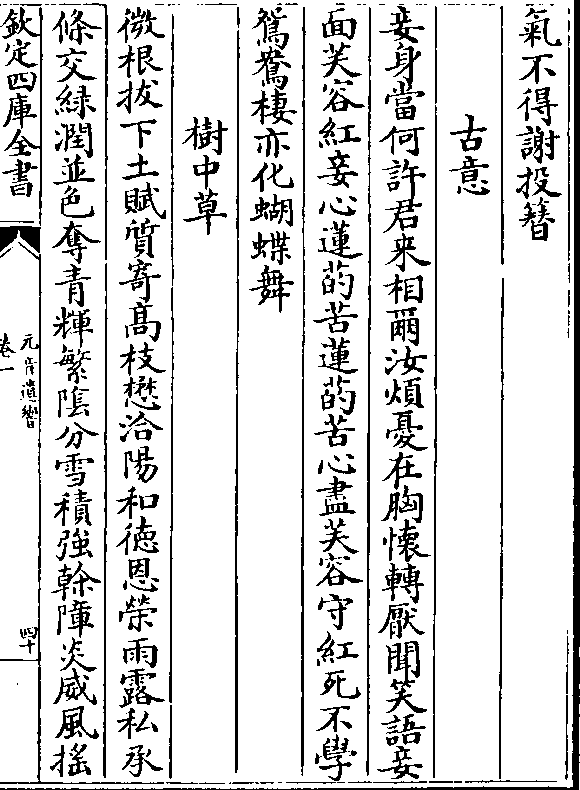 氣不得謝投簪
古意
妾身當何許君来相爾汝煩憂在胸懐轉厭聞笑語妾
面芙容紅妾心蓮菂苦蓮菂苦心盡芙容守紅死不學
鴛鴦棲亦化蝴蝶舞
樹中草
微根拔下土賦質寄髙枝懋洽陽和徳恩榮雨露私承
條交緑潤並色奪青輝繁隂分雪積強榦障炎威風揺
欽定四庫全書
元音遺響
卷一
四十